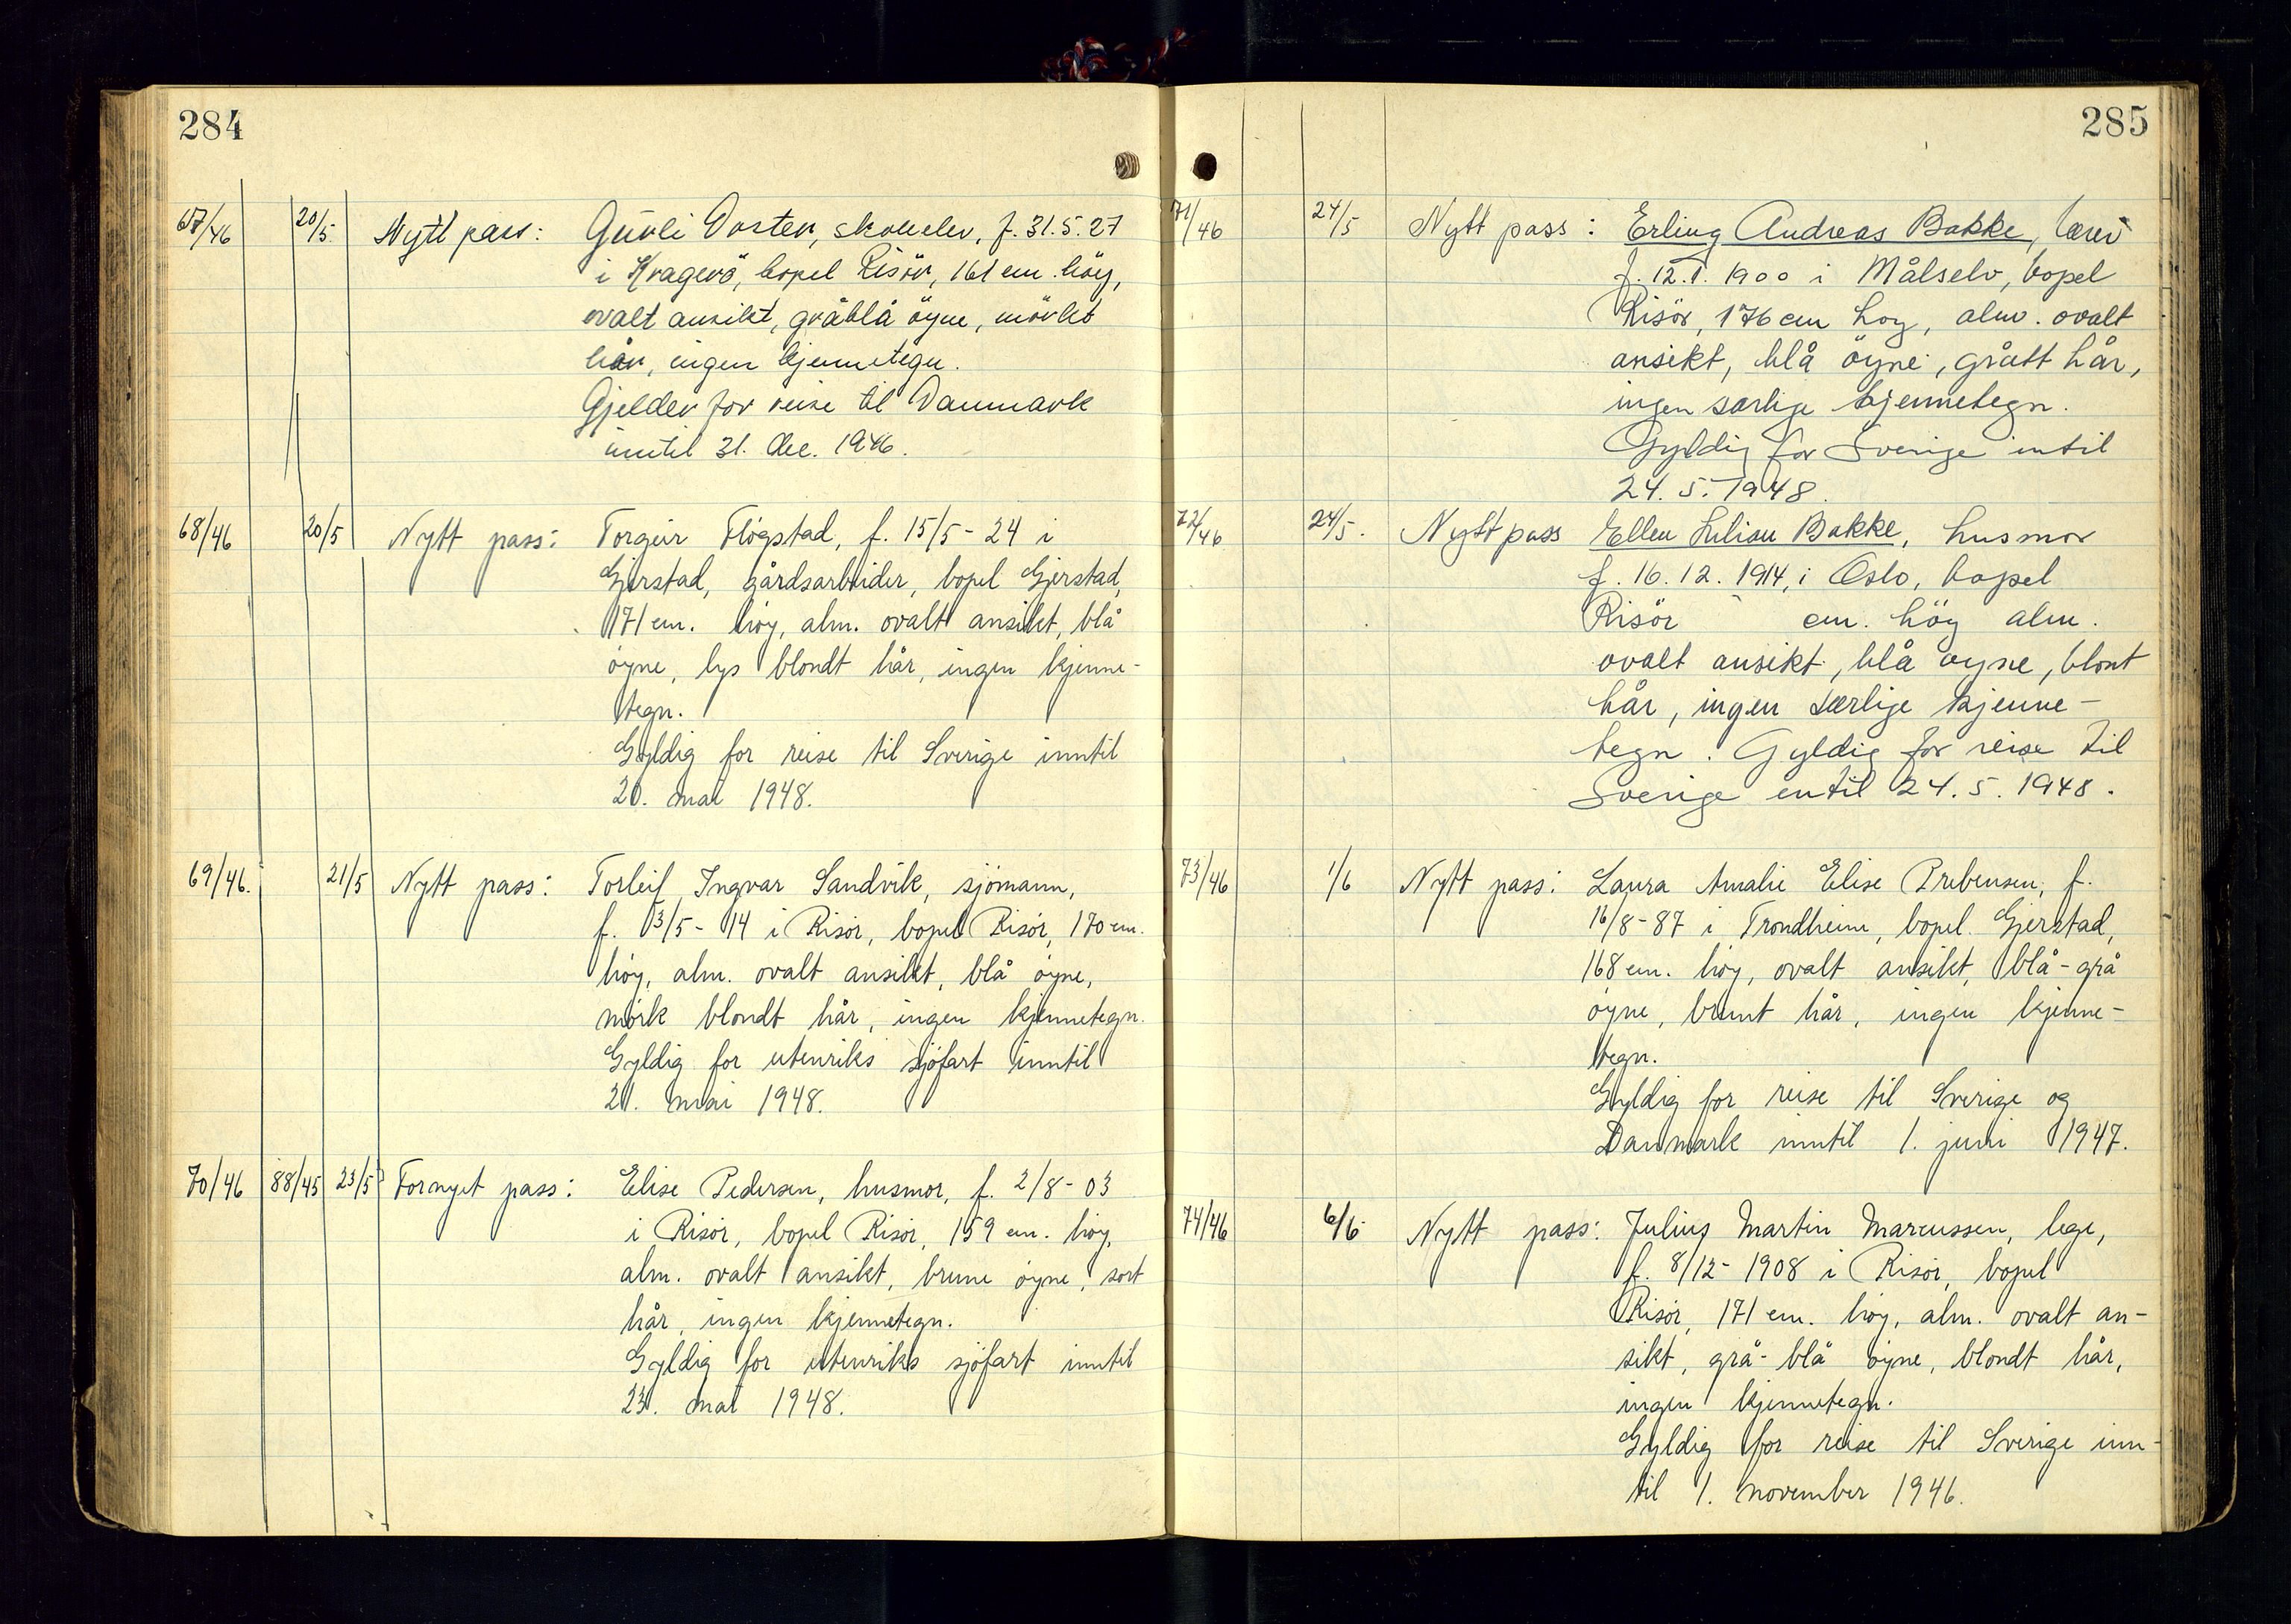 284
67/46 20/5 Nytt pass: Gunli Dosten, skoleelev, f. 31.5.27
i Kragerö, bopel Risör, 161 cm. höy,
ovalt ansikt, gråblå öyne, mörkt
hår, ingen kjennetegn.
Gjelder for reise til Danmark
inntil 31. des. 1946.
68/46 20/5 Nytt pass: Torgeir Flögstad, f. 15/5-24 i
Gjerstad, gårdsarbeider, bopel Gjerstad,
171 cm. höy, alm. ovalt ansikt, blå
öyne, lys blondt hår, ingen kjenne-
tegn.
Gyldig for reise til Sverige inntil
20. mai 1948.
69/46. 21/5 Nytt pass: Torleif Ingvar Sandvik, sjömann,
f. 13/5-14 i Risör, bopel Risör, 170 cm.
höy, alm. ovalt ansikt, blå öyne,
mörk blondt hår, ingen kjennetegn.
Gyldig for utenriks sjöfart inntil
21. mai 1948.
70/46 88/45 23/5 Fornyet pass: Elise Pedersen, husmor, f. 2/8-03
i Risör, bopel Risör, 159 cm. höy,
alm. ovalt ansikt, brune öyne, sort
hår, ingen kjennetegn.
Gyldig for utenriks sjöfart inntil
23. mai 1948.
285
71/46 24/5 Nytt pass: Erling Andreas Bakke,
f. 12.1.1900 i Målselv, bopel
Risör, 176 cm hoy, alm. ovalt
ansikt, blå öyne, grått hår,
ingen særlige kjennetegn.
Gyldig for Sverige intil
24.5.1948.
72/46 24/5. Nytt pass Ellen Lilian Bakke, husmor
f. 16.12.1914, i Oslo, bopel
Risör cm. höy alm.
ovalt ansikt, blå oyne, blont
hår, ingen særlige kjenne-
tegn. Gyldig for reise til
Sverige entil 24.5.1948.
73/46 1/6 Nytt pass: Laura Amalie Elise Prebensen, f.
16/8-87 i Trondheim, bopel. Gjerstad,
168 cm. höy, ovalt ansikt, blå-grå
öyne, brunt hår, ingen kjenne-
tegn.
Gyldig for reise til Sverige og
Danmark inntil 1. juni 1947.
74/46 6/6 Nytt pass: Julius Martin Marcussen, lege,
f. 8/12-1908 i Risör, bopel
Risör, 171 cm. höy, alm. ovalt an-
sikt, grå-blå öyne, blondt hår,
ingen kjennetegn.
Gyldig for reise til Sverige inn-
til 1. november 1946.